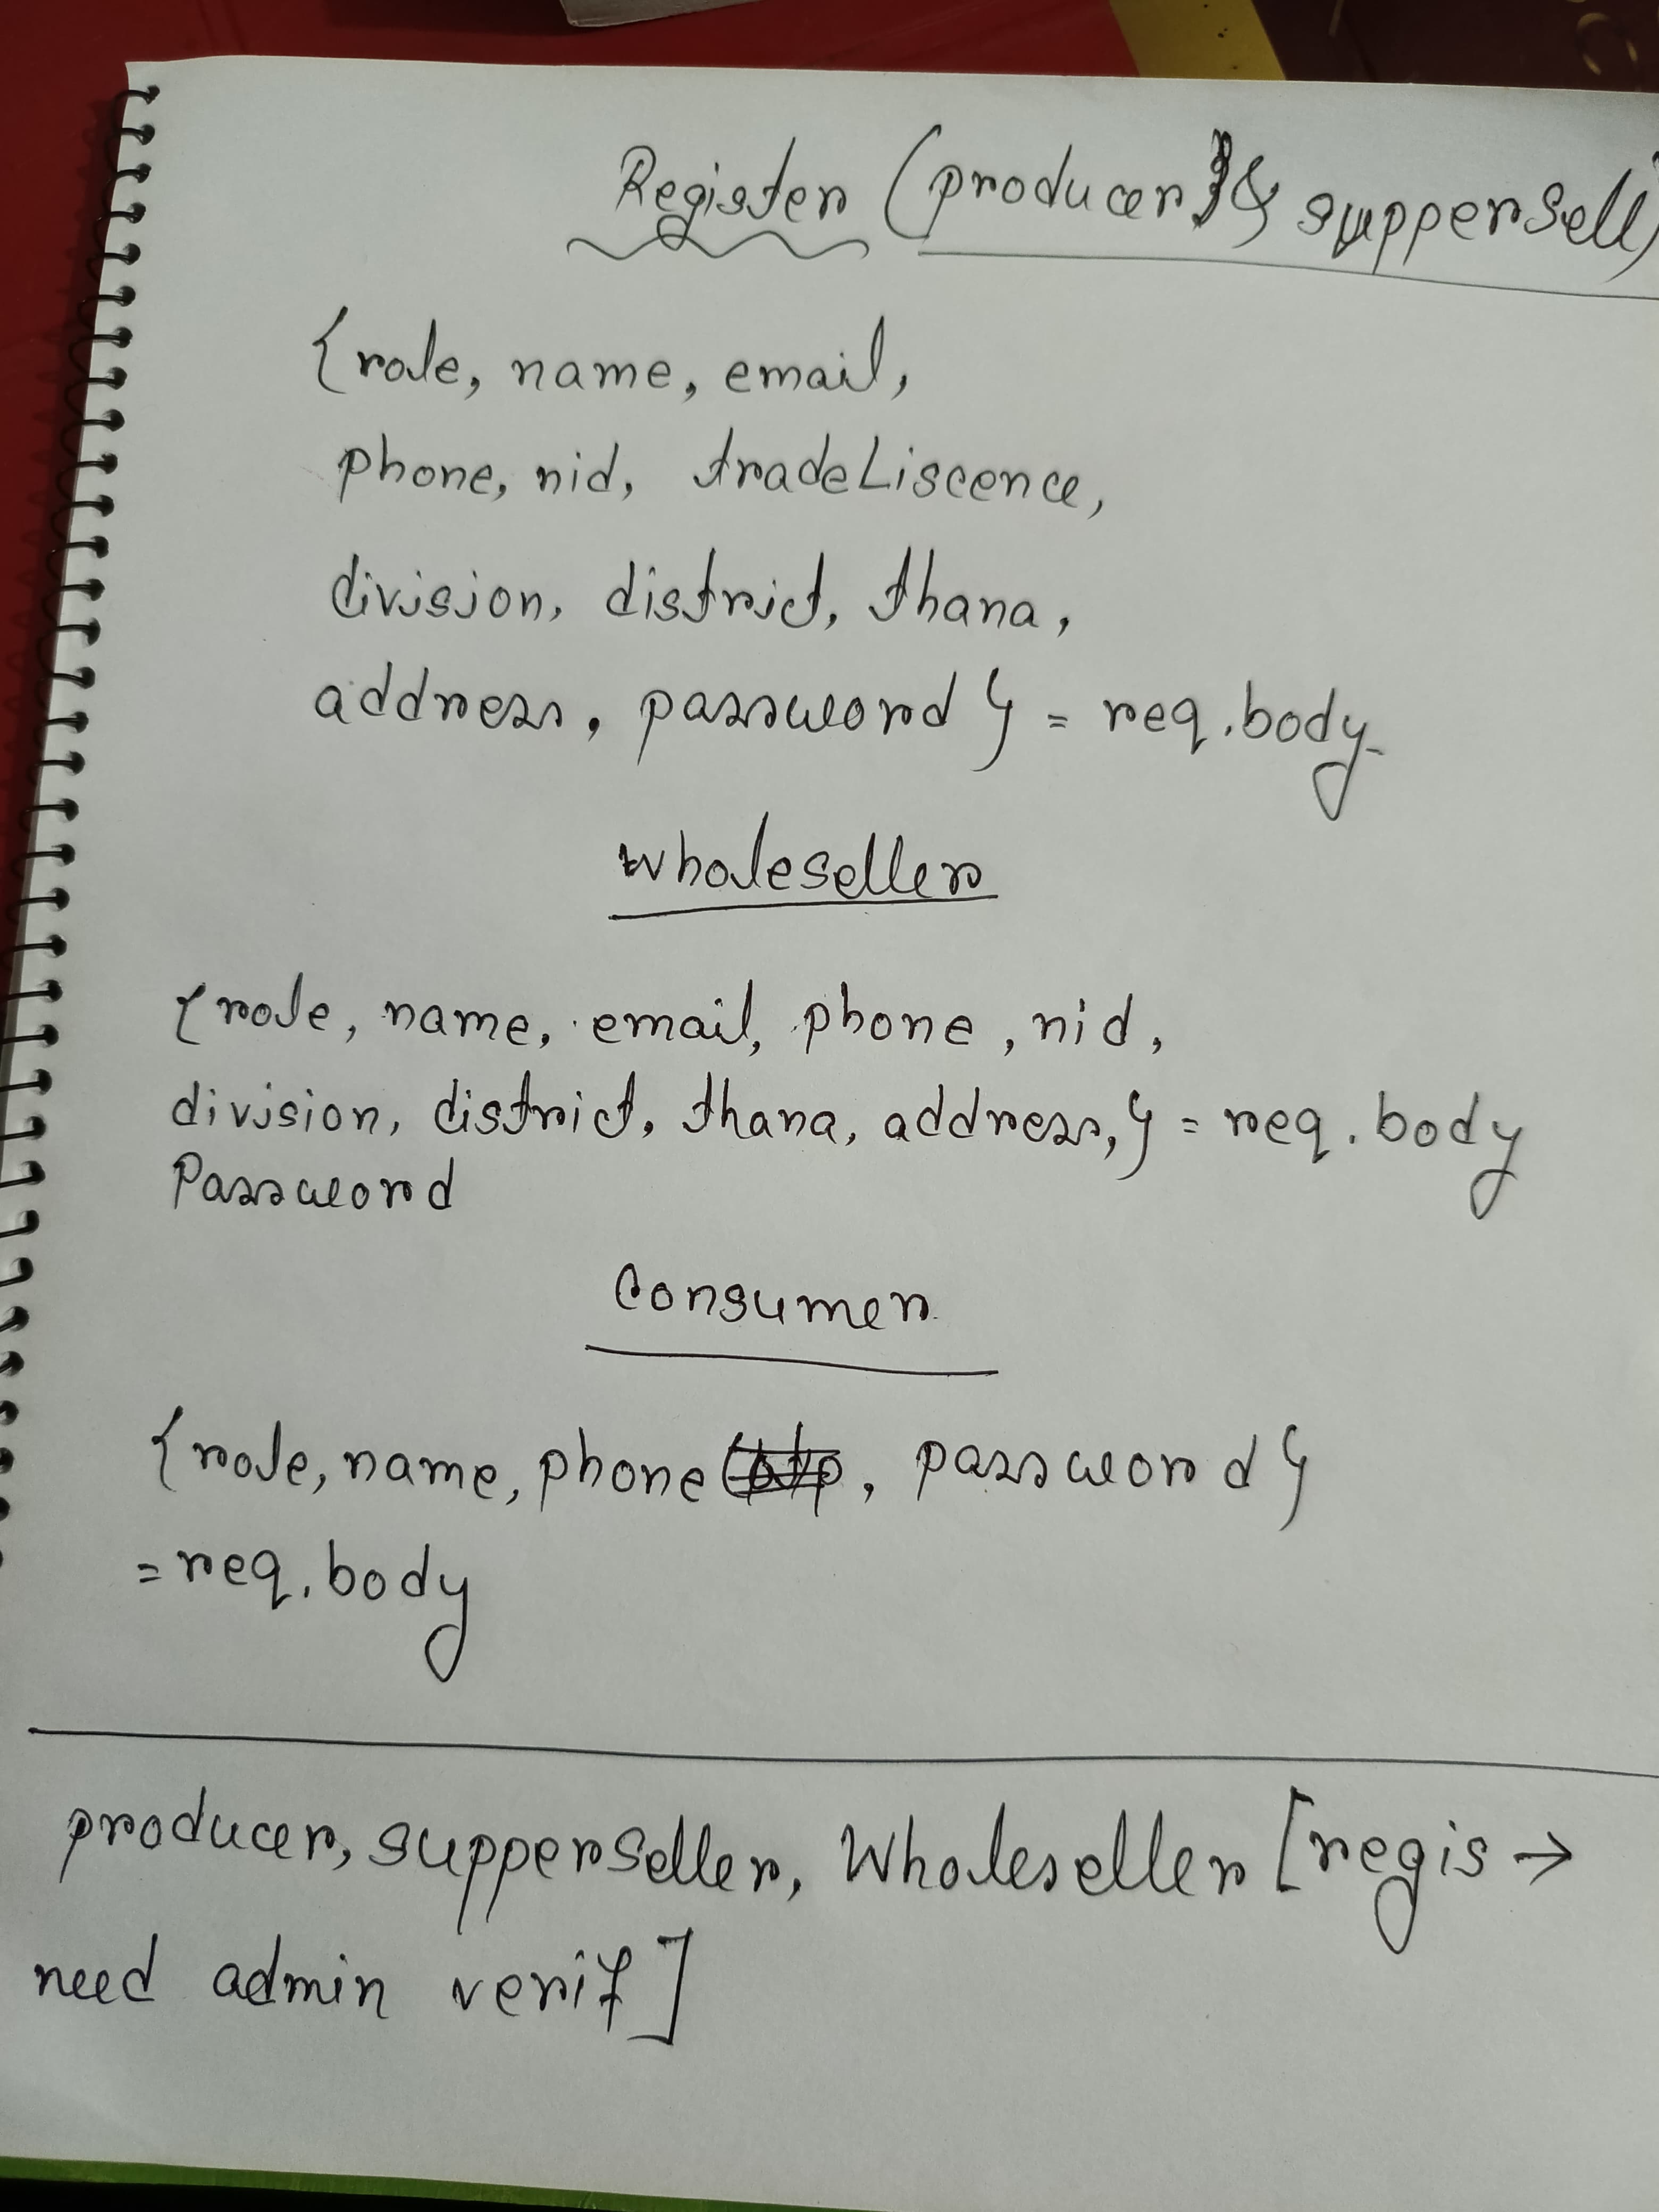 Register (producer & suppersell)
{role, name, email,
phone, nid, tradeLiscence,
division, district, thana,
address, password} = req.body
wholeseller
{role, name, email, phone, nid,
division, district, thana, address,} = req.body
Password
Consumer
{role, name, phone, password}
= req.body
producer, supperseller, Wholeseller [regis →
need admin verif]